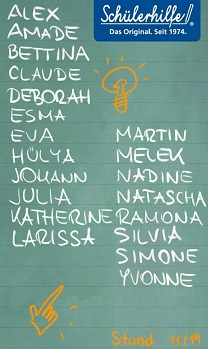 Schülerhilfe!
Das Original. Seit 1974.
ALEX
AMADE
BETTINA
CLAUDE
DEBORAH
ESMA
EVA
HÜLYA
JOHANN
JULIA
KATHERINE
LARISSA
MARTIN
MELEK
NADINE
NATASCHA
RAMONA
SILVIA
SIMONE
YVONNE
Stand 11/19